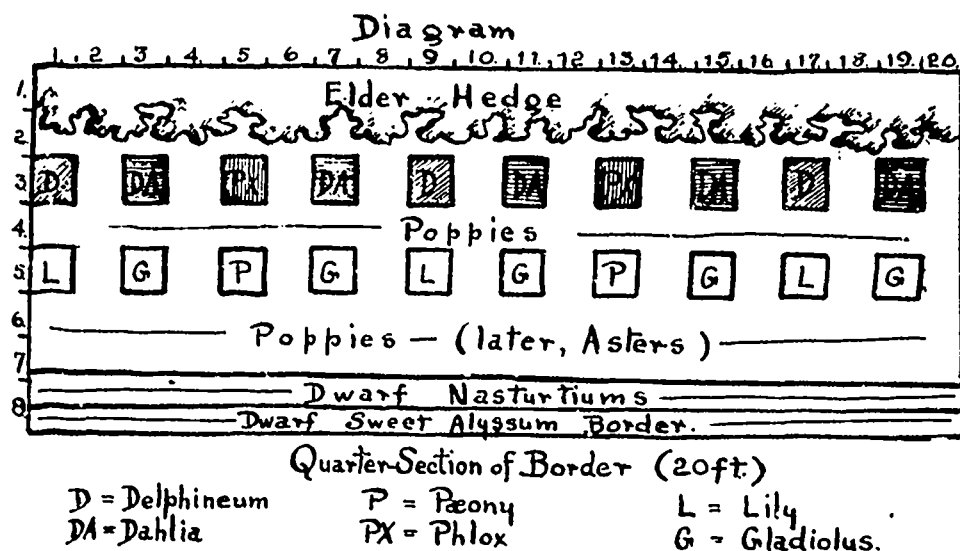 Diagram
1. 2 3 4 5 6 7 8 9 10. 11. 12 13. 14. 15. 16 17. 18. 19. 20.
1. Elder Hedge
2.
3. D DA PX DA D DA PX DA D DA
4. Poppies
5. L G P G L G P G L G
6. Poppies — (later, Asters)
7
Dwarf Nasturtiums
8.
Dwarf Sweet Alyssum Border.
Quarter-Section of Border (20ft.)
D = Delphineum P = Pæony L = Lily
DA = Dahlia PX = Phlox G = Gladiolus.